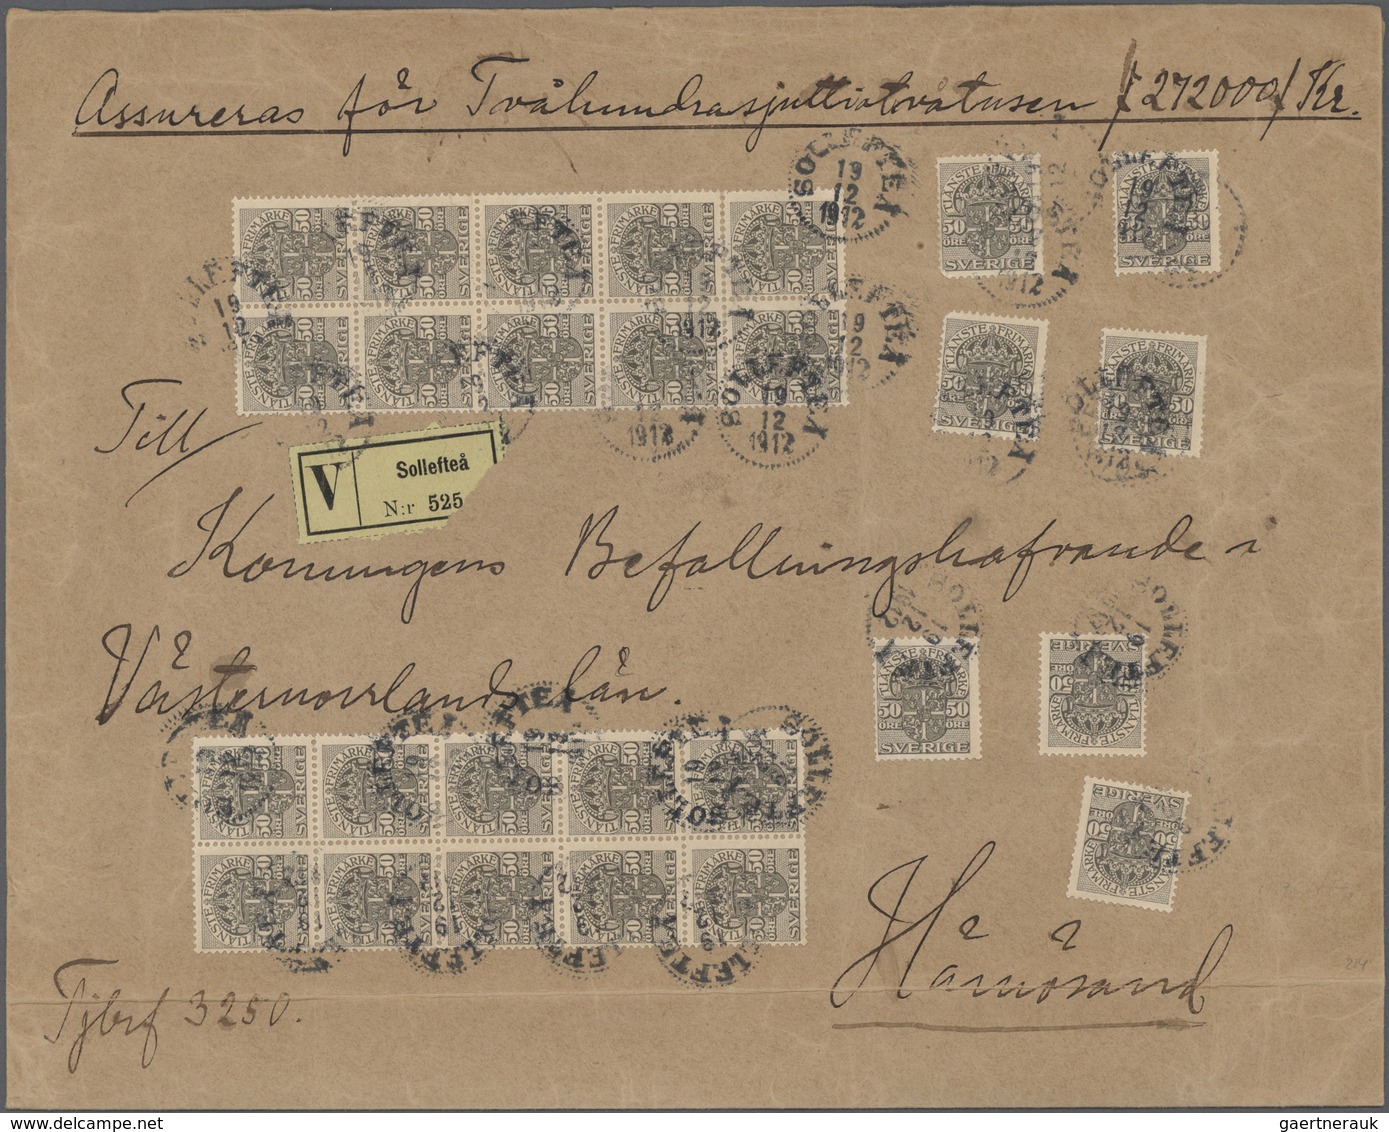 Assureras för Tvåhundrasjuttiotvåtusen /272000/ Kr.
SOLLEFTEÅ
19
12
1912
TJÄNSTE FRIMÄRKE
50 50
ÖRE ÖRE
SVERIGE
Till
V Sollefteå
N:r 525
Konungens Befallningshafvande i
Västernorrlands län.
Härnösand
Tjbrf 3250.
delcampe.net
gaertnerauk